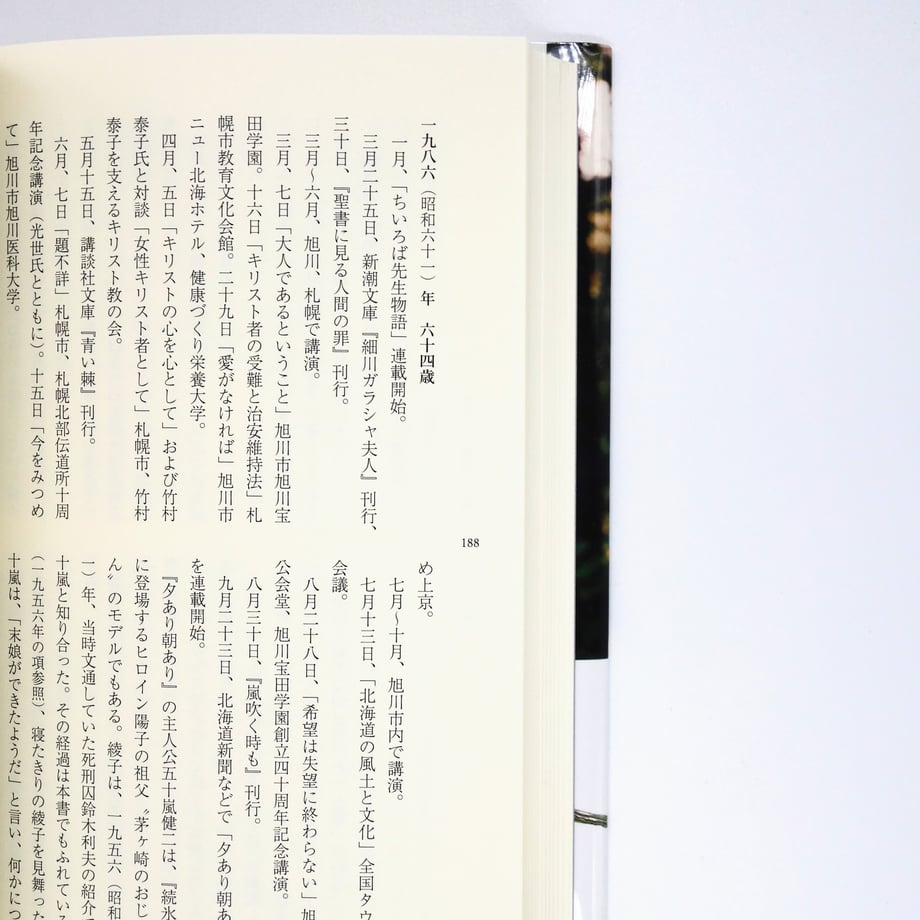 一九八六（昭和六十一）年　六十四歳
一月、「ちいろば先生物語」連載開始。
三月二十五日、新潮文庫『細川ガラシャ夫人』刊行、
三十日、『聖書に見る人間の罪』刊行。
三月〜六月、旭川、札幌で講演。
三月、七日「大人であるということ」旭川市旭川宝
田学園。十六日「キリスト者の受難と治安維持法」札
幌市教育文化会館。二十九日「愛がなければ」旭川市
ニュー北海ホテル、健康づくり栄養大学。
四月、五日「キリストの心を心として」および竹村
泰子氏と対談「女性キリスト者として」札幌市、竹村
泰子を支えるキリスト教の会。
五月十五日、講談社文庫『青い棘』刊行。
六月、七日「題不詳」札幌市、札幌北部伝道所十周
年記念講演（光世氏とともに）。十五日「今をみつめ
て」旭川市旭川医科大学。
188
め上京。
七月〜十月、旭川市内で講演。
七月十三日、「北海道の風土と文化」全国タウ
会議。
八月二十八日、「希望は失望に終わらない」旭
公会堂、旭川宝田学園創立四十周年記念講演。
八月三十日、『嵐吹く時も』刊行。
九月二十三日、北海道新聞などで「夕あり朝あ
を連載開始。
『夕あり朝あり』の主人公五十嵐健二は、『続氷
に登場するヒロイン陽子の祖父〝茅ヶ崎のおじ
ん〟のモデルでもある。綾子は、一九五六（昭和
一）年、当時文通していた死刑囚鈴木利夫の紹介で
十嵐と知り合った。その経過は本書でもふれている
（一九五六年の項参照）、寝たきりの綾子を見舞った
十嵐は、「末娘ができたようだ」と言い、何かにつ